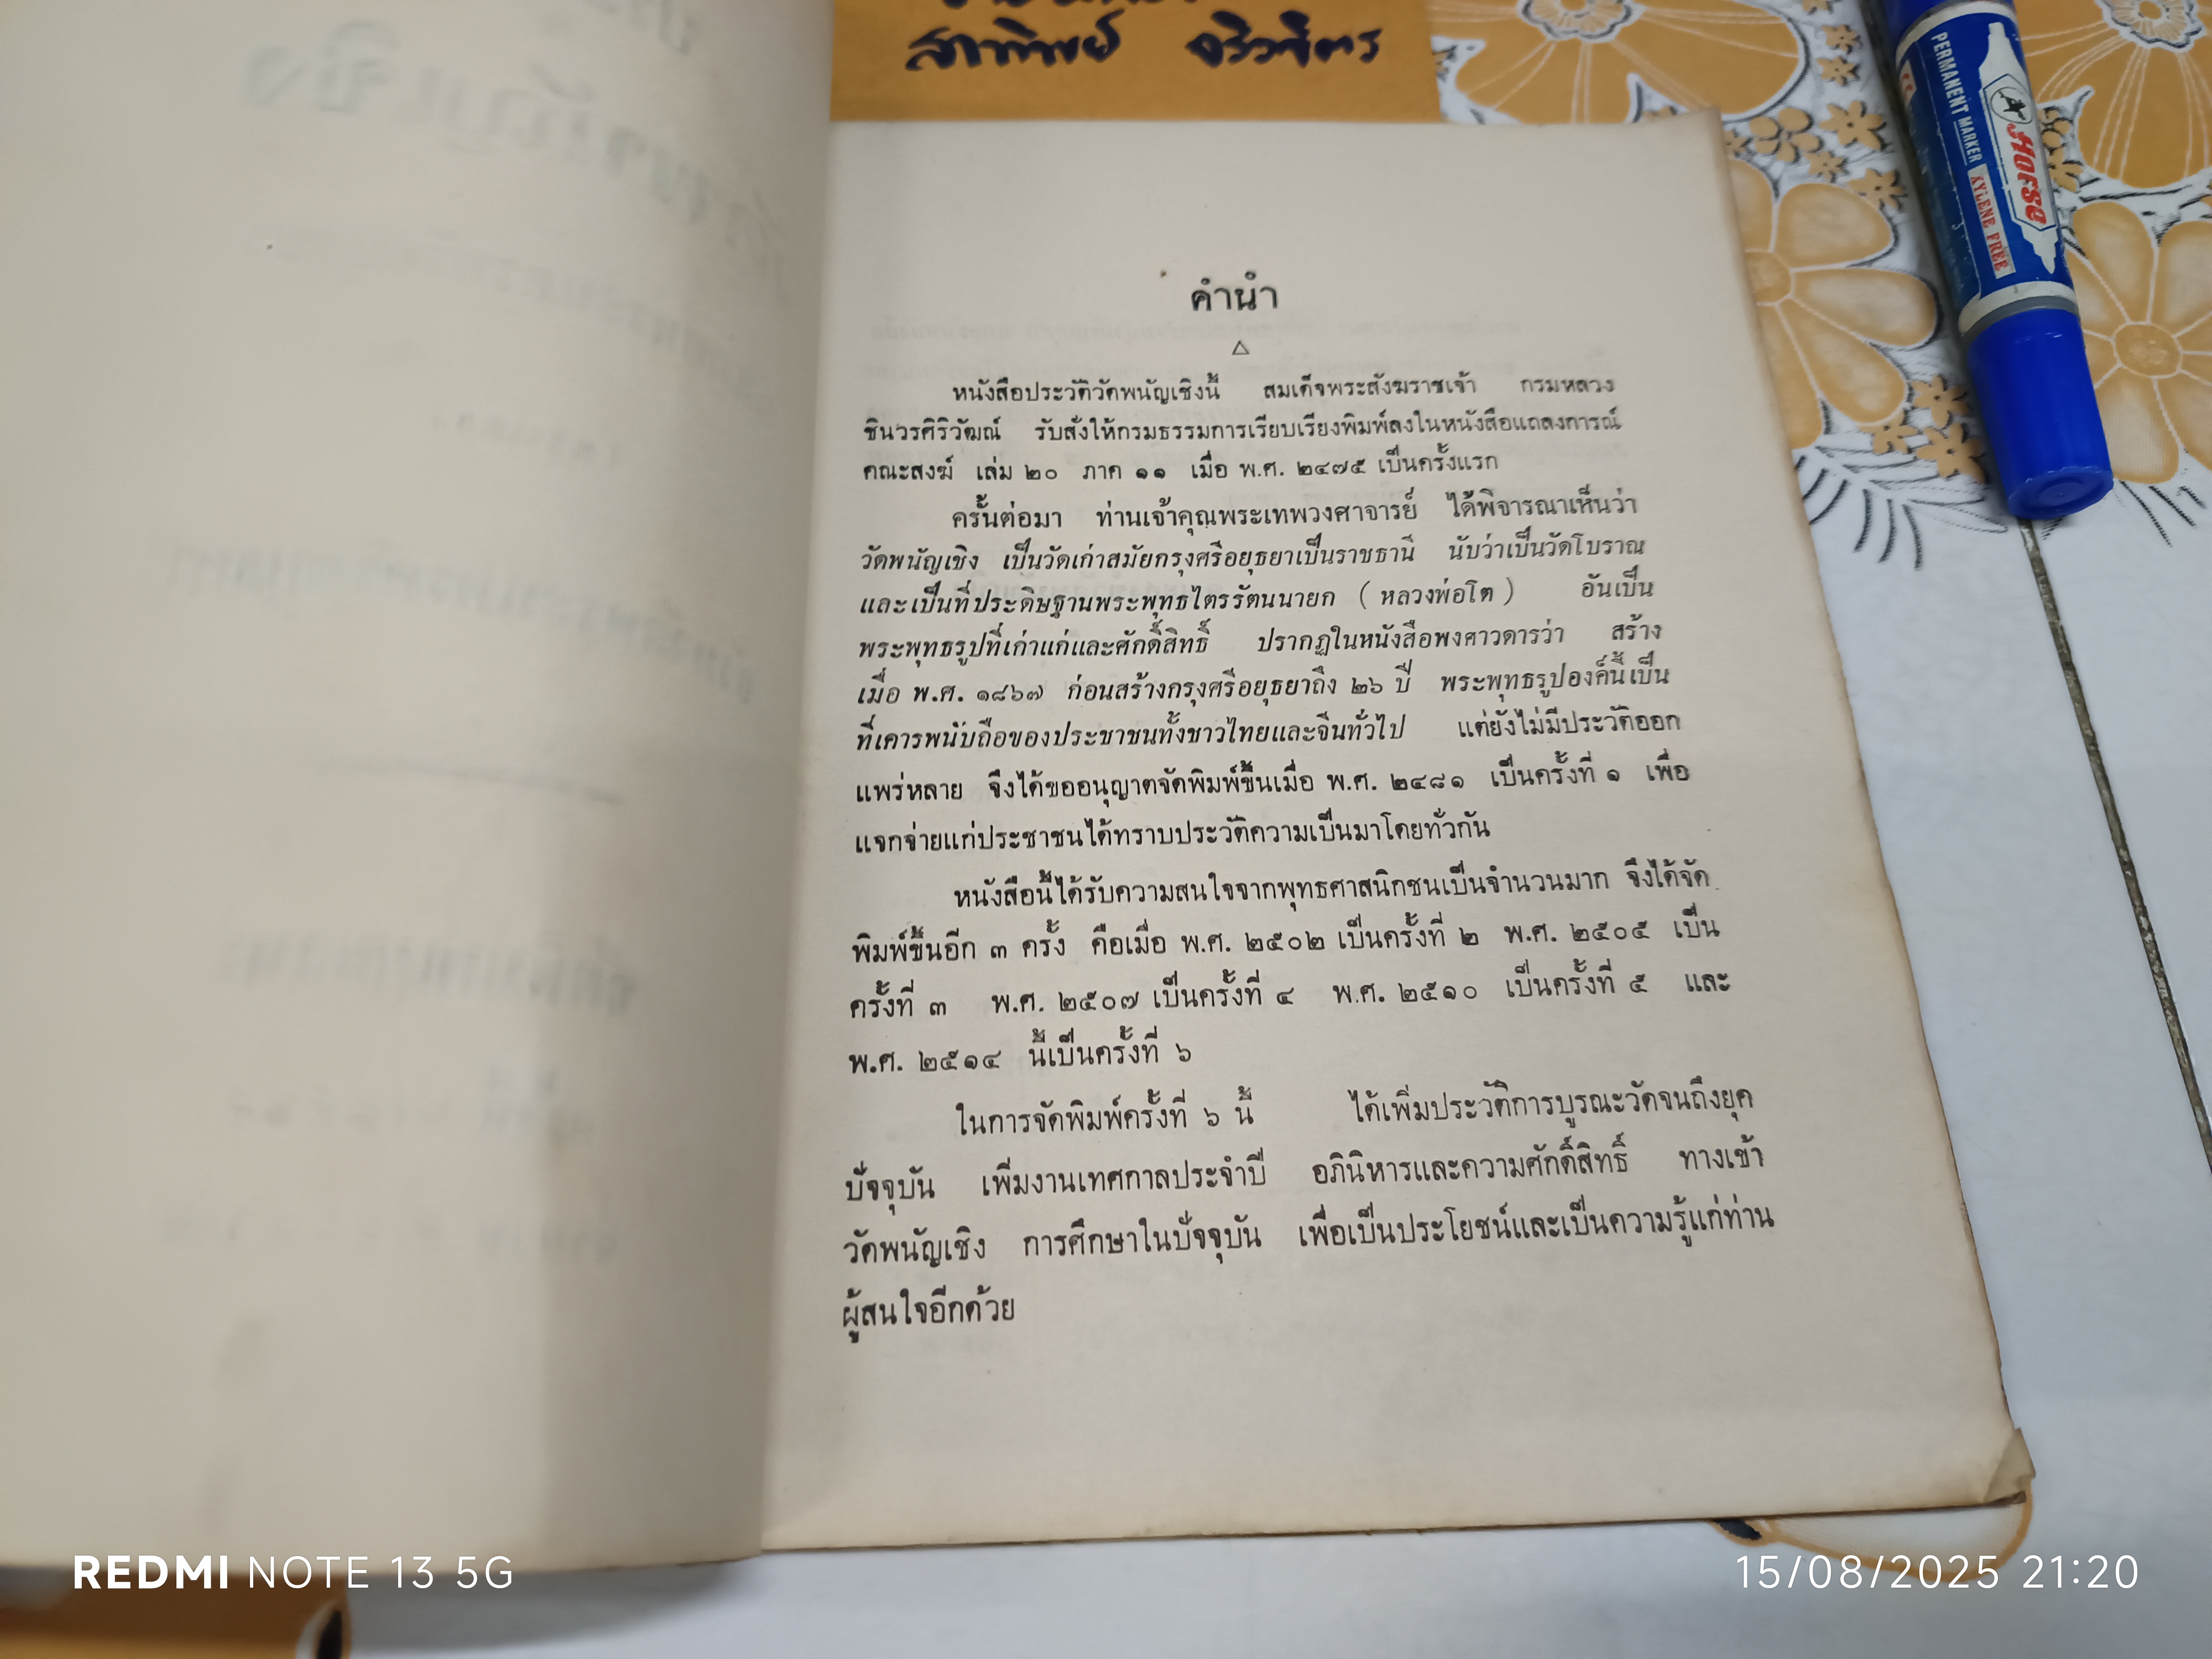 สุภาทิพย์ จริวจิตร
PERMANENT MARKER
Horse
XYLENE FREE
คำนำ
หนังสือประวัติวัดพนัญเชิงนี้ สมเด็จพระสังฆราชเจ้า กรมหลวง
ชินวรศิริวัฒณ์ รับสั่งให้กรมธรรมการเรียบเรียงพิมพ์ลงในหนังสือแถลงการณ์
คณะสงฆ์ เล่ม ๒๐ ภาค ๑๑ เมื่อ พ.ศ. ๒๔๗๕ เป็นครั้งแรก
ครั้นต่อมา ท่านเจ้าคุณพระเทพวงศาจารย์ ได้พิจารณาเห็นว่า
วัดพนัญเชิง เป็นวัดเก่าสมัยกรุงศรีอยุธยาเป็นราชธานี นับว่าเป็นวัดโบราณ
และเป็นที่ประดิษฐานพระพุทธไตรรัตนนายก ( หลวงพ่อโต ) อันเป็น
พระพุทธรูปที่เก่าแก่และศักดิ์สิทธิ์ ปรากฏในหนังสือพงศาวดารว่า สร้าง
เมื่อ พ.ศ. ๑๘๖๗ ก่อนสร้างกรุงศรีอยุธยาถึง ๒๖ ปี พระพุทธรูปองค์นี้เป็น
ที่เคารพนับถือของประชาชนทั้งชาวไทยและจีนทั่วไป แต่ยังไม่มีประวัติออก
แพร่หลาย จึงได้ขออนุญาตจัดพิมพ์ขึ้นเมื่อ พ.ศ. ๒๔๘๑ เป็นครั้งที่ ๑ เพื่อ
แจกจ่ายแก่ประชาชนได้ทราบประวัติความเป็นมาโดยทั่วกัน
หนังสือนี้ได้รับความสนใจจากพุทธศาสนิกชนเป็นจำนวนมาก จึงได้จัด
พิมพ์ขึ้นอีก ๓ ครั้ง คือเมื่อ พ.ศ. ๒๕๐๒ เป็นครั้งที่ ๒ พ.ศ. ๒๕๐๕ เป็น
ครั้งที่ ๓ พ.ศ. ๒๕๐๗ เป็นครั้งที่ ๔ พ.ศ. ๒๕๑๐ เป็นครั้งที่ ๕ และ
พ.ศ. ๒๕๑๔ นี้เป็นครั้งที่ ๖
ในการจัดพิมพ์ครั้งที่ ๖ นี้ ได้เพิ่มประวัติการบูรณะวัดจนถึงยุค
ปัจจุบัน เพิ่มงานเทศกาลประจำปี อภินิหารและความศักดิ์สิทธิ์ ทางเข้า
วัดพนัญเชิง การศึกษาในปัจจุบัน เพื่อเป็นประโยชน์และเป็นความรู้แก่ท่าน
ผู้สนใจอีกด้วย
REDMI NOTE 13 5G
15/08/2025 21:20